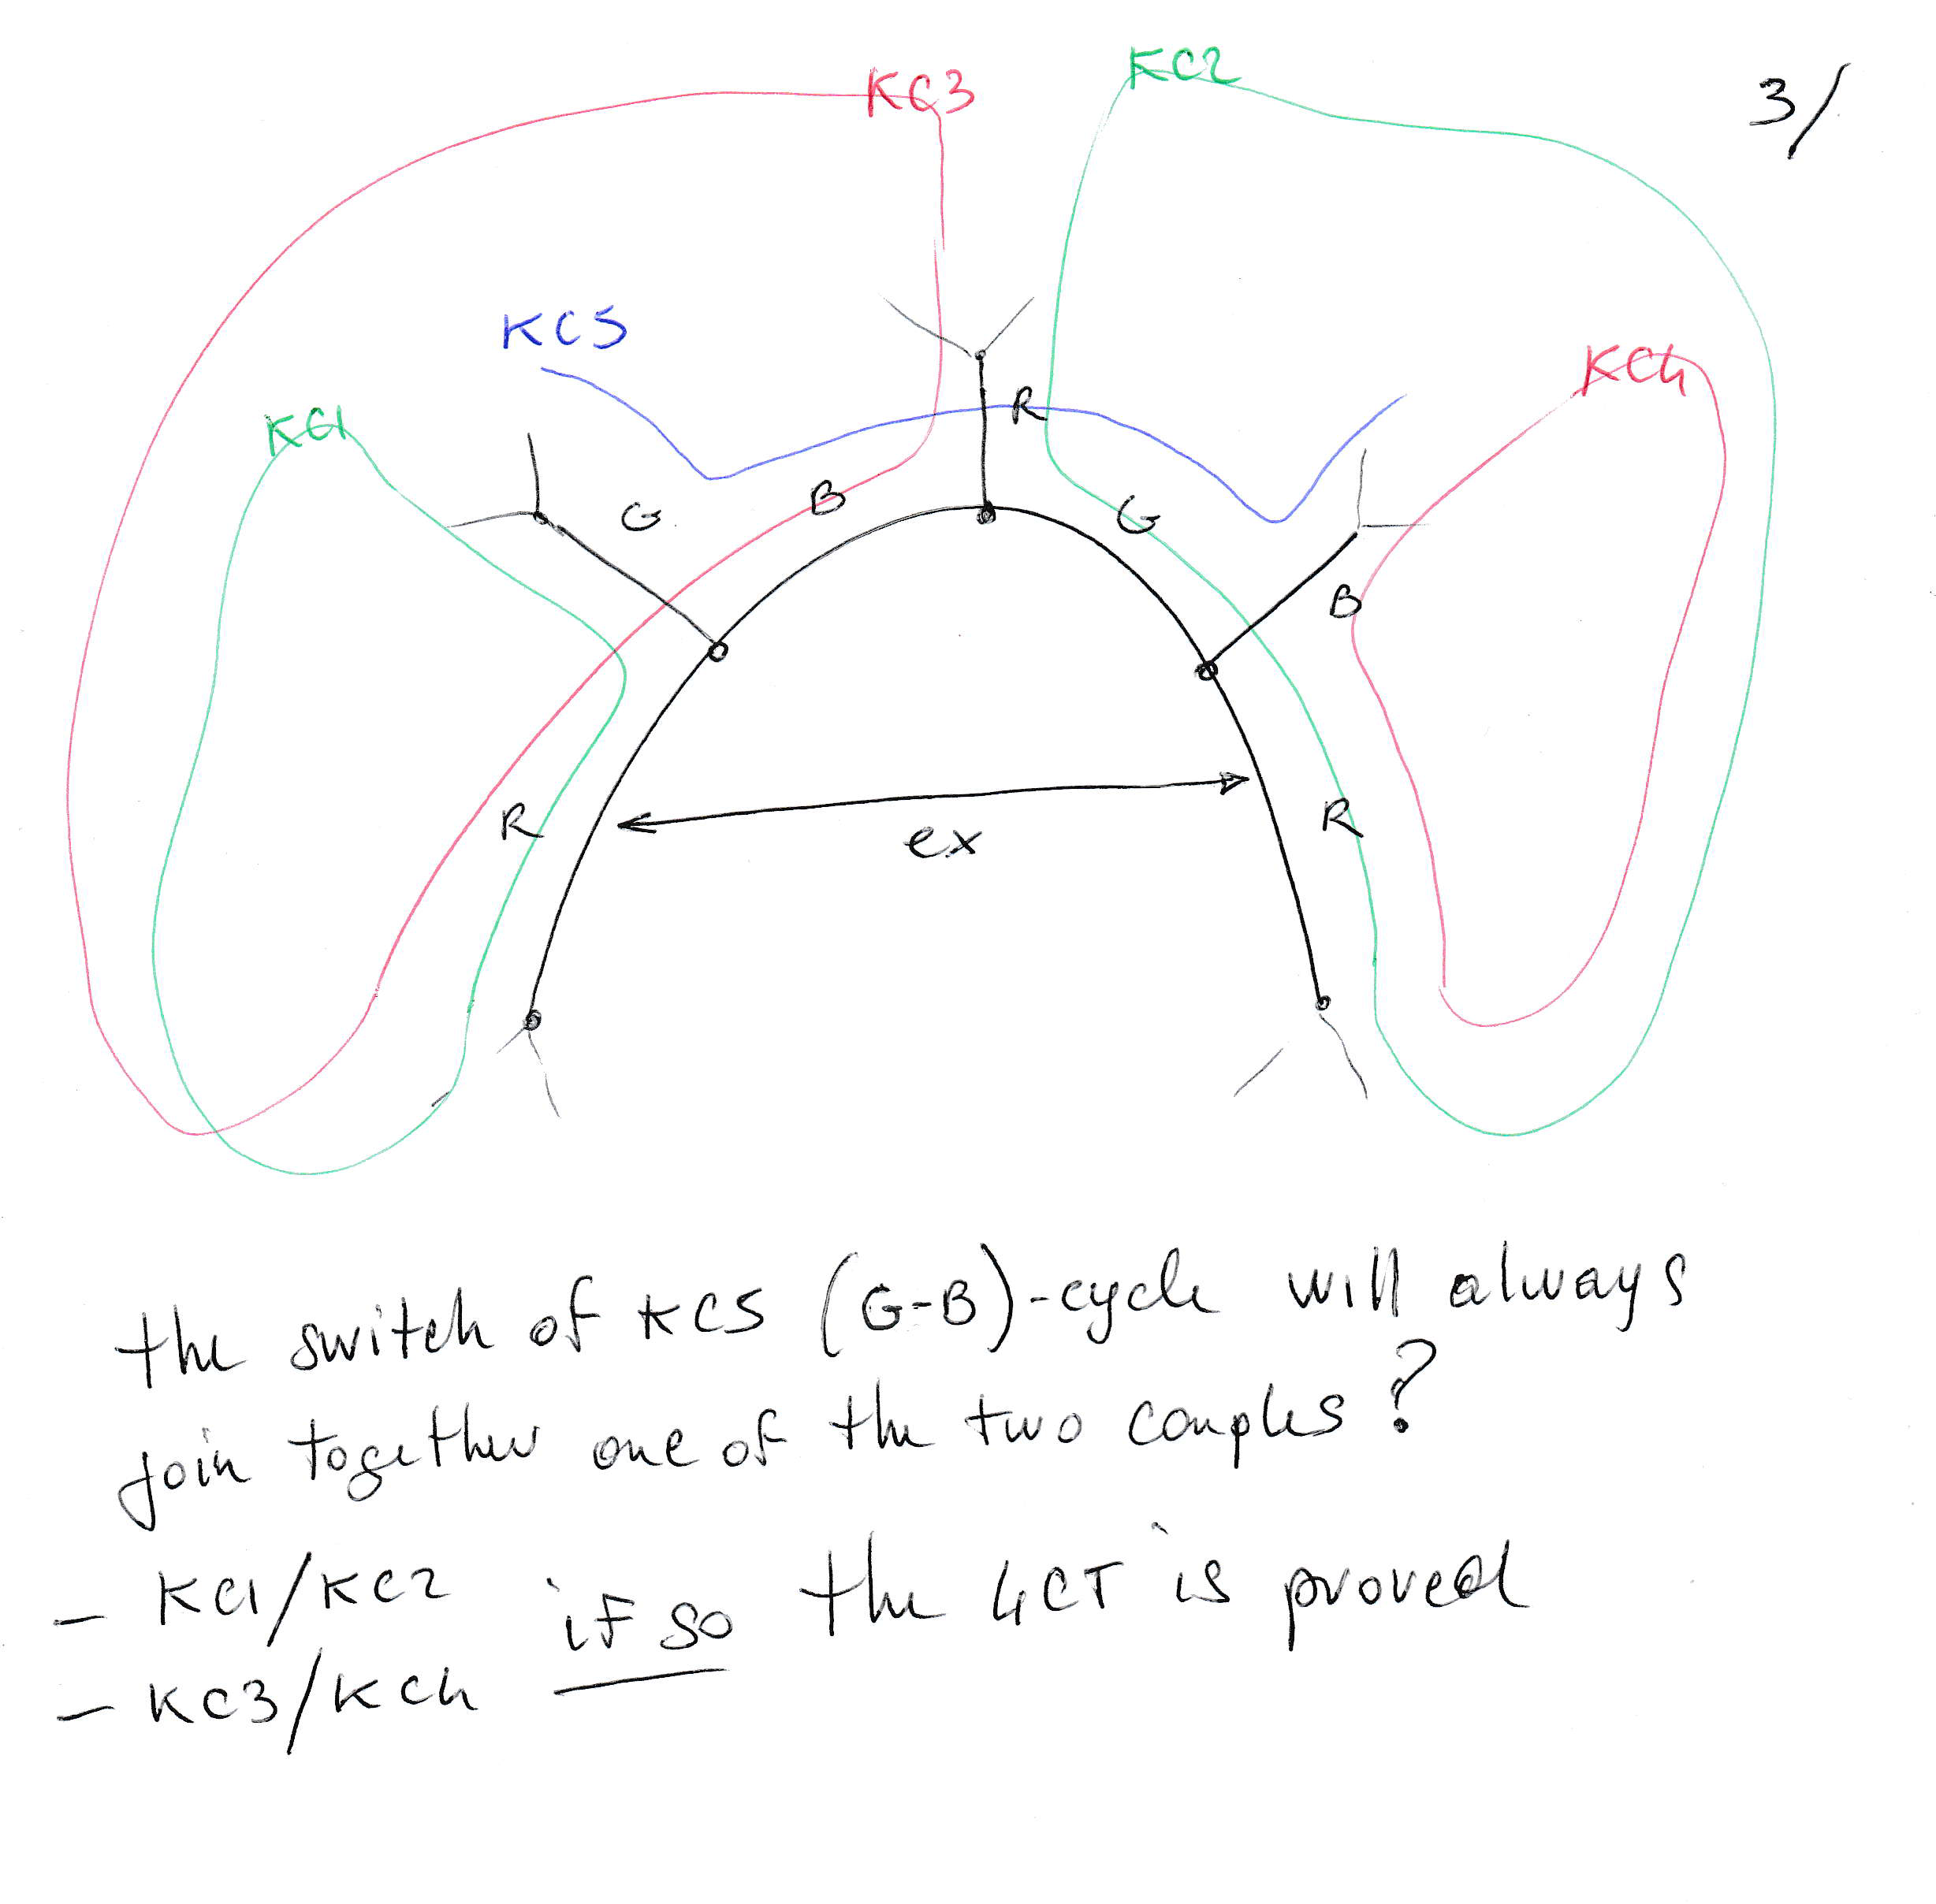 KC3
KC2
3/
KC5
KC4
KC1
R
G
B
G
B
R
R
ex
the switch of KC5 (G-B)-cycle will always
join together one of the two couples?
- KC1/KC2 if so the 4CT is proved
- KC3/KC4